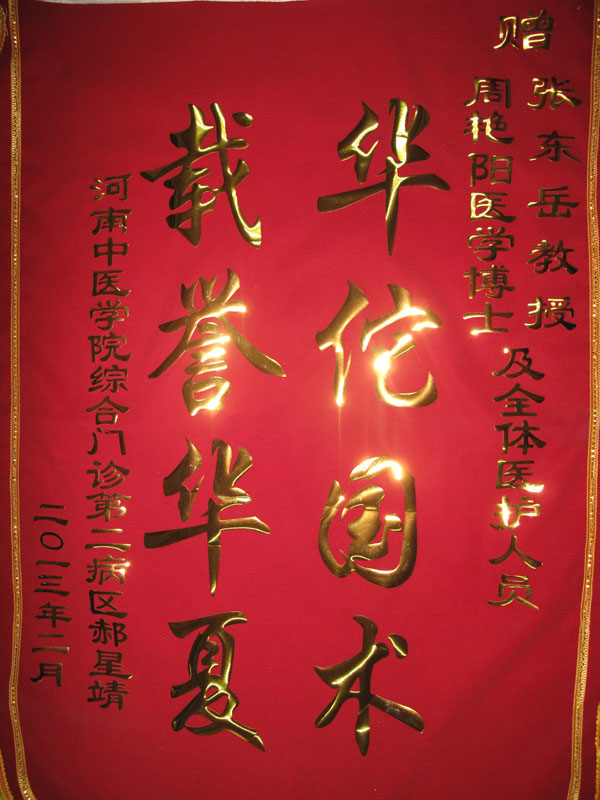 赠
张东岳教授
周艳阳医学博士
及全体医护人员
华佗国术
载誉华夏
河南中医学院综合门诊第二病区郝星靖
二〇一三年二月